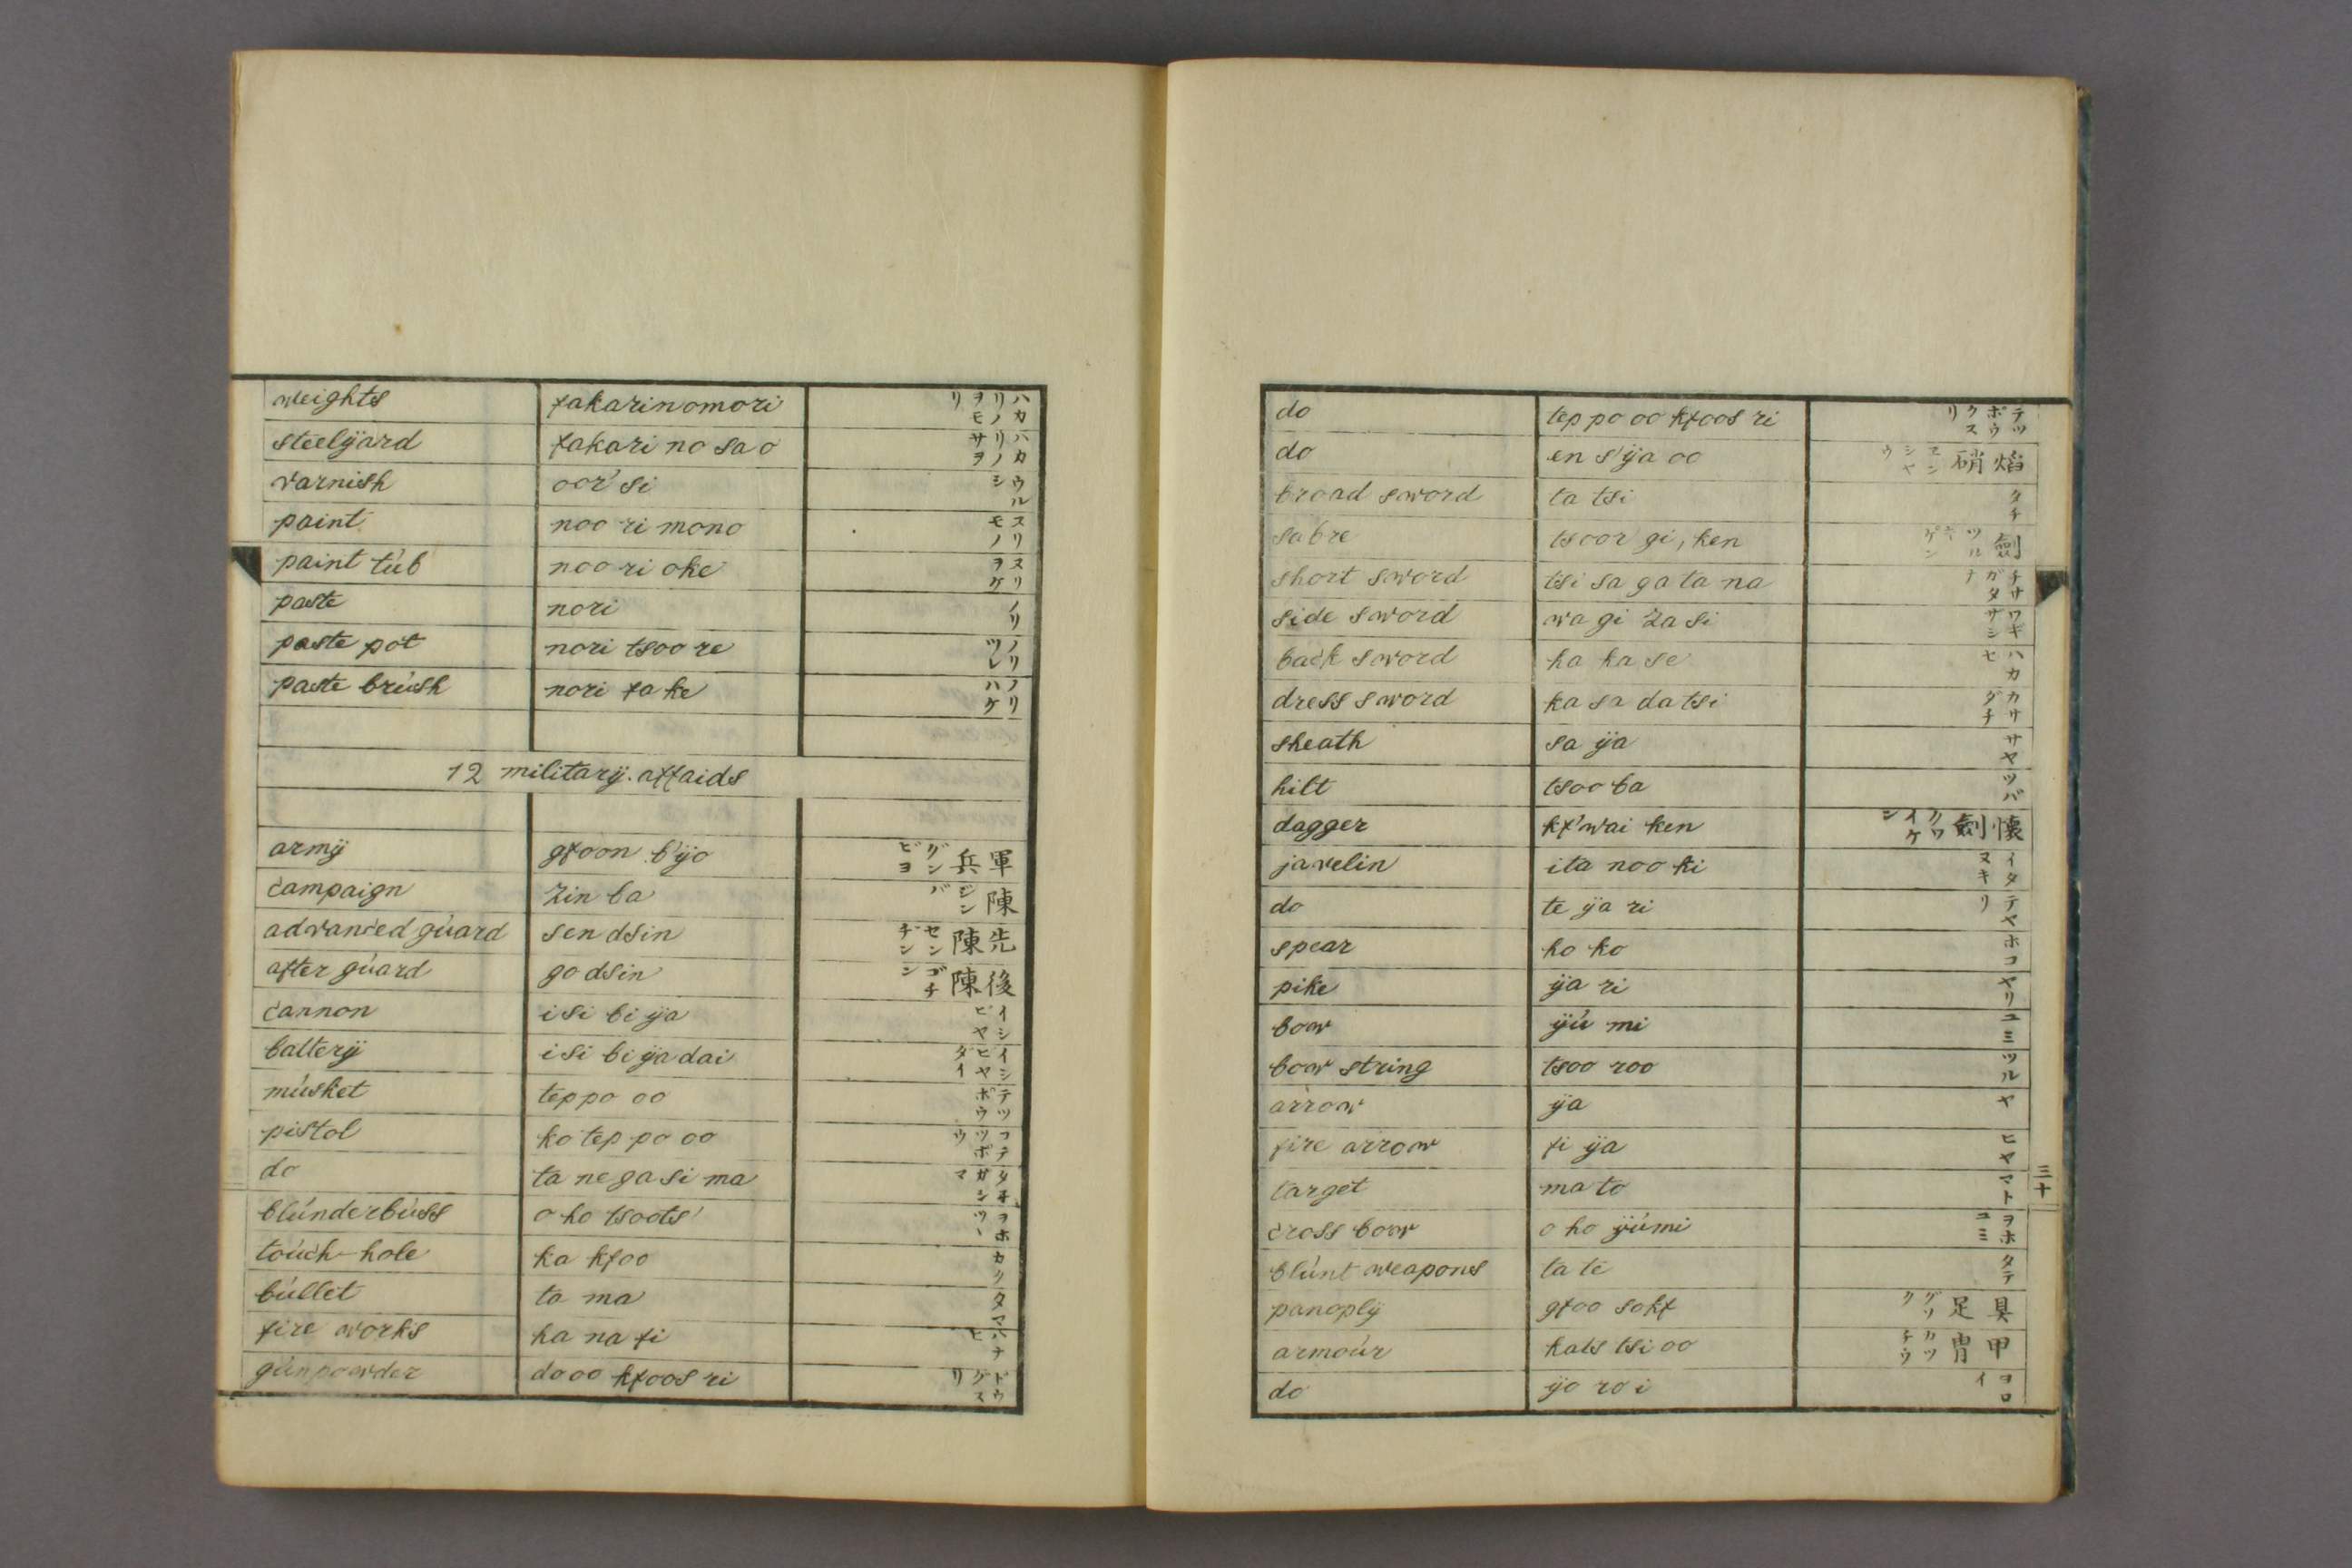 weights fakarinomori ハカリノヲモリ
steelÿard fakari no sa o ハカリノサヲ
varnish oor'si ウルシ
paint noo ri mono スリモノ
paint túb noo ri oke ヌリヲケ
paste nori ノリ
paste pot nori tsoo re ノリツレ
paste brúsh nori fa ke ノリハケ
12 militarÿ. affaids
armÿ gfoon b'ÿo 軍兵 グンビヨ
campaign zin ba 陳 ジンバ
advanced gúard sen dsin 先陳 センヂン
after gúard go dsin 後陳 ゴチン
cannon isi bi ÿa イシビヤ
batterÿ isi bi ÿa dai イシビヤダイ
músket teppo oo テツボウ
pistol ko tep po oo コテツボウ
do ta ne ga si ma タネガシマ
blúnderbúss o ho tsoots' ヲホツヽ
toúch-hole ka kfoo カク
búllet ta ma タマ
fire works ha na fi ハナヒ
gúnpowder dooo kfoos ri ドウグスリ
do tep po oo kfoos ri テツボウクスリ
do en s'ÿa oo 焔硝 エンシヤウ
broad sword ta tsi タチ
sabre tsoor gi, ken 劍 ツルギ ケン
short sword tsi sa ga ta na チサガタナ
side sword wa gi za si ワギザシ
back sword ha ka se ハカセ
dress sword ka sa da tsi カサダチ
sheath sa ÿa サヤ
hilt tsoo ba ツバ
dagger kf'wai ken 懷劍 クワイケン
javelin ita noo ki イタヌキ
do te ÿa ri テヤリ
spear ho ko ホコ
pike ÿa ri ヤリ
bow ÿú mi ユミ
bow string tsoo roo ツル
arrow ÿa ヤ
fire arrow fi ÿa ヒヤ
target ma to マト
cross bow o ho ÿúmi ヲホユミ
blúnt weapons ta te タテ
panoplÿ gfoo sokf 具足 グソク
armoúr kats tsi oo 甲冑 カツチウ
do ÿo ro i ヨロイ
三十